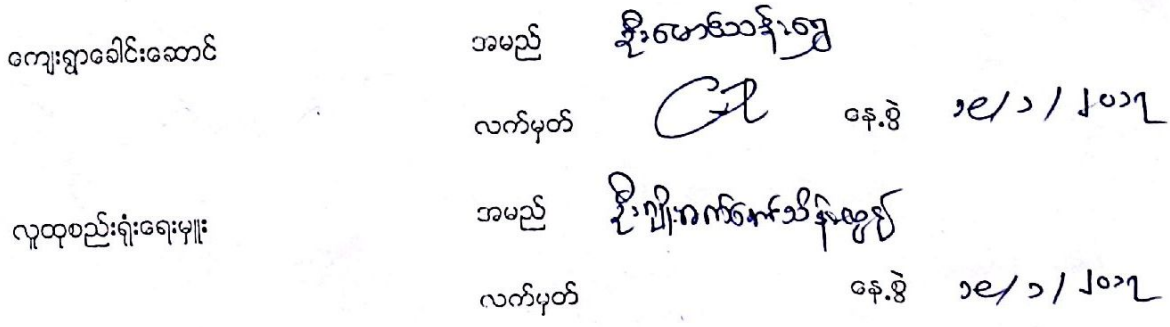 ကျေးရွာခေါင်းဆောင် အမည် ဦးမောင်သန်းရွှေ
လက်မှတ် နေ့စွဲ ၁၉/၁/၂၀၁၇
လူထုစည်းရုံးရေးမှူး အမည်
လက်မှတ် နေ့စွဲ ၁၉/၁/၂၀၁၇